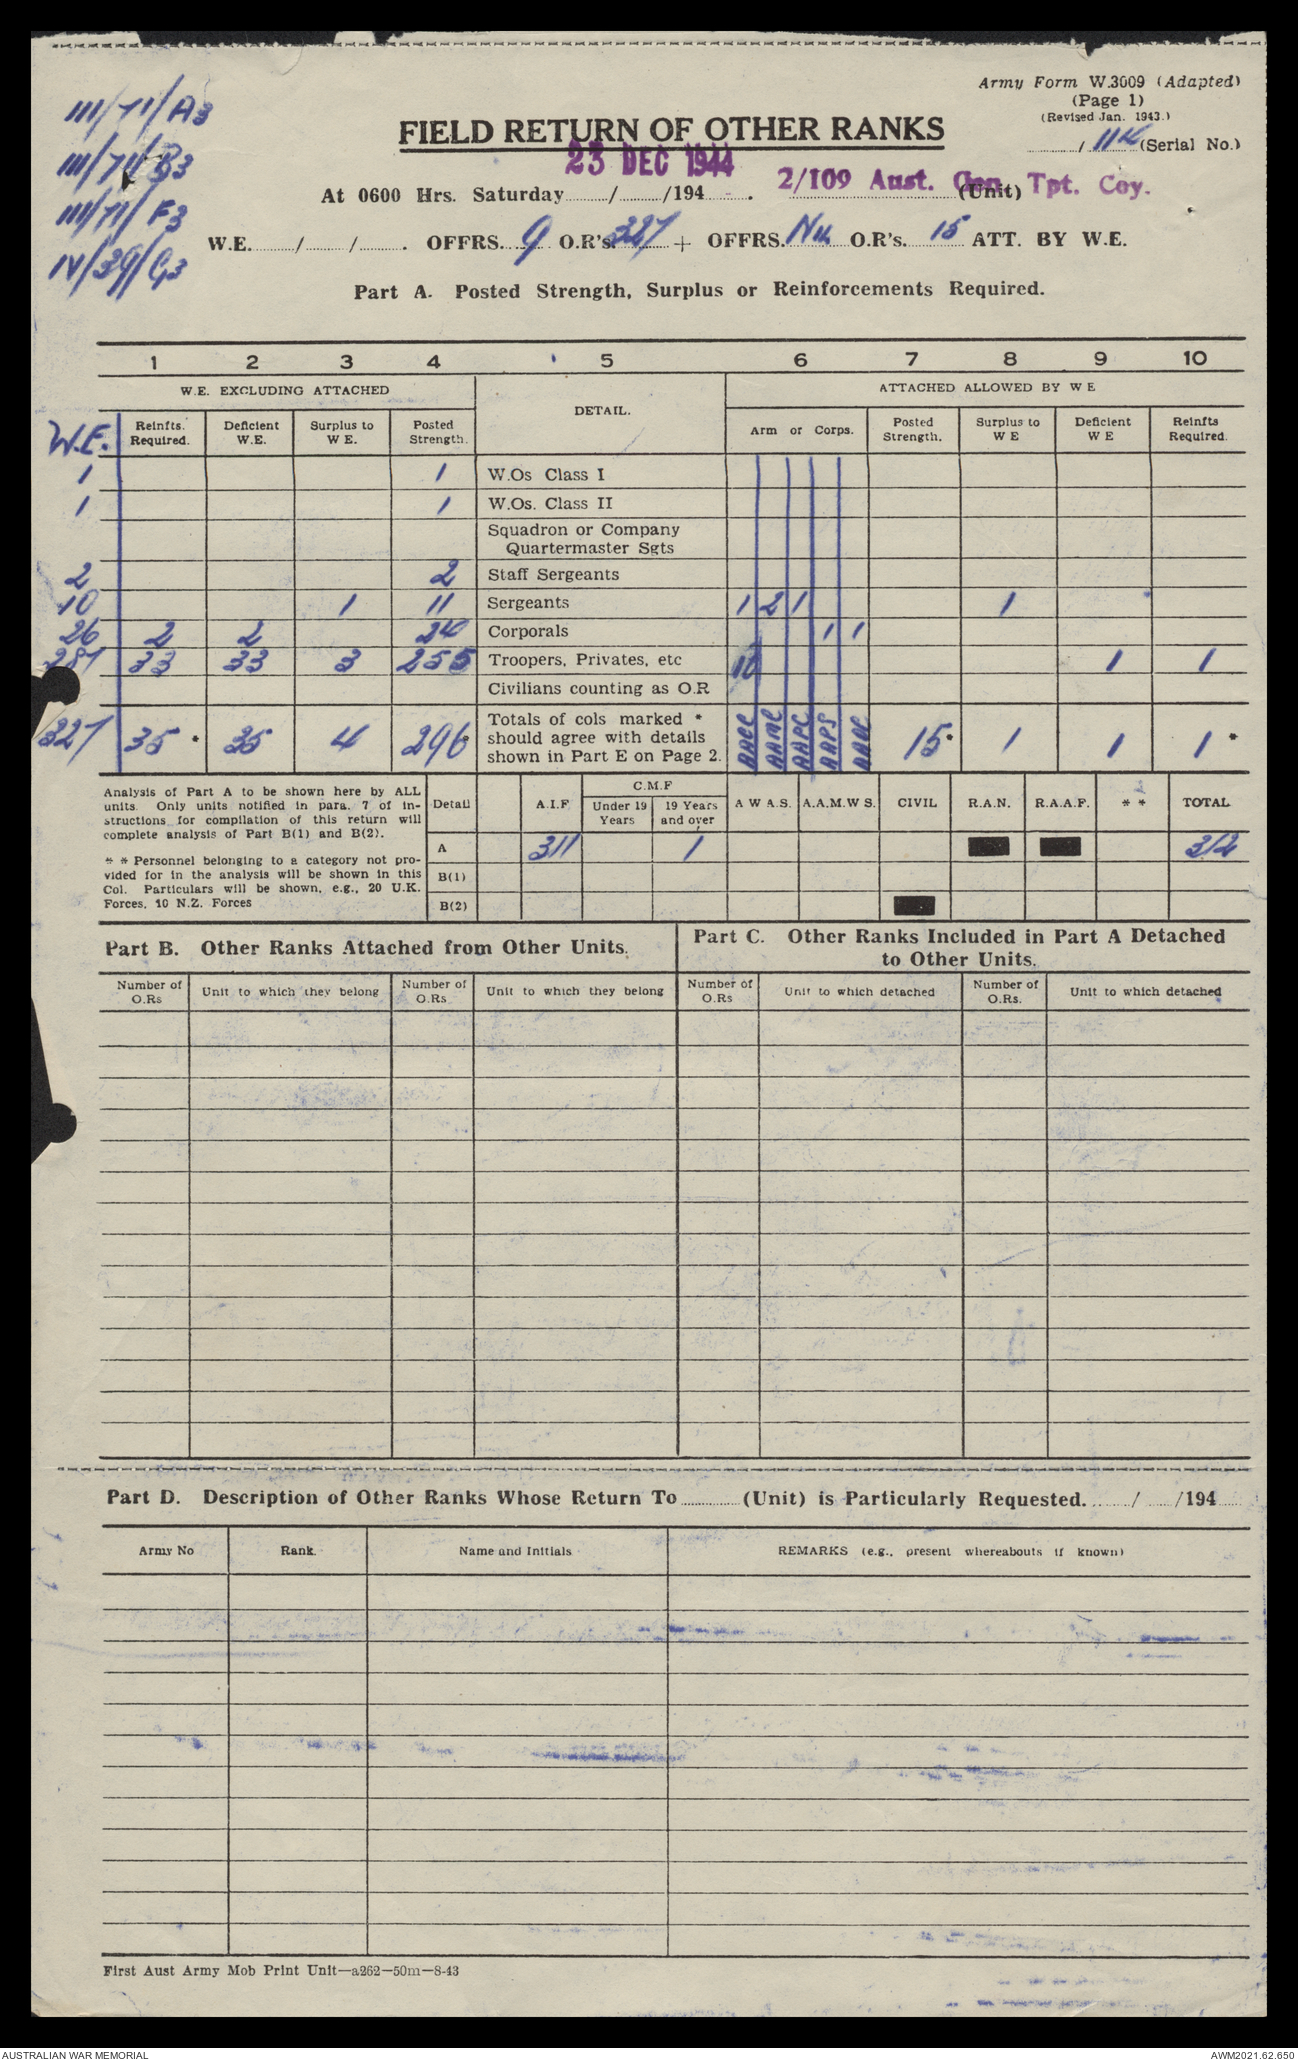 Army Form W.3009 (Adapted)
(Page 1)
(Revised Jan. 1943.)
/ 114 (Serial No.)
III/71/A3
III/71/B3
III/71/F3
IV/39/G3
FIELD RETURN OF OTHER RANKS
23 DEC 1944
At 0600 Hrs. Saturday......../......../194.... . 2/109 Aust. Gen. Tpt. Coy. (Unit)
W.E......../......./....... . OFFRS. 9 O.R's. 327 + OFFRS. Nil O.R's. 15 ATT. BY W.E.
Part A. Posted Strength, Surplus or Reinforcements Required.
1 2 3 4 5 6 7 8 9 10
W.E. EXCLUDING ATTACHED DETAIL. ATTACHED ALLOWED BY W E
W.E. Reinfts. Required. Deficient W.E. Surplus to W E. Posted Strength. Arm or Corps. Posted Strength. Surplus to W E Deficient W E Reinfts Required.
1 1 W.Os Class I
1 1 W.Os. Class II
Squadron or Company
Quartermaster Sgts
2 2 Staff Sergeants
10 1 11 Sergeants 1 2 1 1
26 2 2 24 Corporals 1 1
287 33 33 3 255 Troopers, Privates, etc 10 1 1
Civilians counting as O.R
Totals of cols marked *
327 35 * 35 4 296 * should agree with details AACC AAMC AAPC AAPS AAOC 15 * 1 1 1 *
shown in Part E on Page 2.
Analysis of Part A to be shown here by ALL
units. Only units notified in para. 7 of in-
structions for compilation of this return will
complete analysis of Part B(1) and B(2).
* * Personnel belonging to a category not pro-
vided for in the analysis will be shown in this
Col. Particulars will be shown, e.g., 20 U.K.
Forces, 10 N.Z. Forces
C.M.F
Detail A.I.F. Under 19 Years 19 Years and over A W A.S. A.A.M.W S. CIVIL R.A.N. R.A.A.F. * * TOTAL
A 311 1 312
B(1)
B(2)
Part B. Other Ranks Attached from Other Units.
Part C. Other Ranks Included in Part A Detached
to Other Units.
Number of O.Rs Unit to which they belong Number of O.Rs. Unit to which they belong Number of O.Rs Unit to which detached Number of O.Rs. Unit to which detached
Part D. Description of Other Ranks Whose Return To............(Unit) is Particularly Requested......../....../194.....
Army No Rank. Name and Initials REMARKS (e.g., present whereabouts if known)
First Aust Army Mob Print Unit—a262—50m—8-43
AUSTRALIAN WAR MEMORIAL AWM2021.62.650